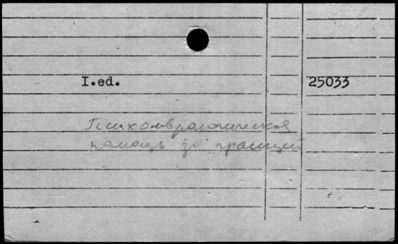 I.ed. 25033
Психоневрологическая
помощь за границей